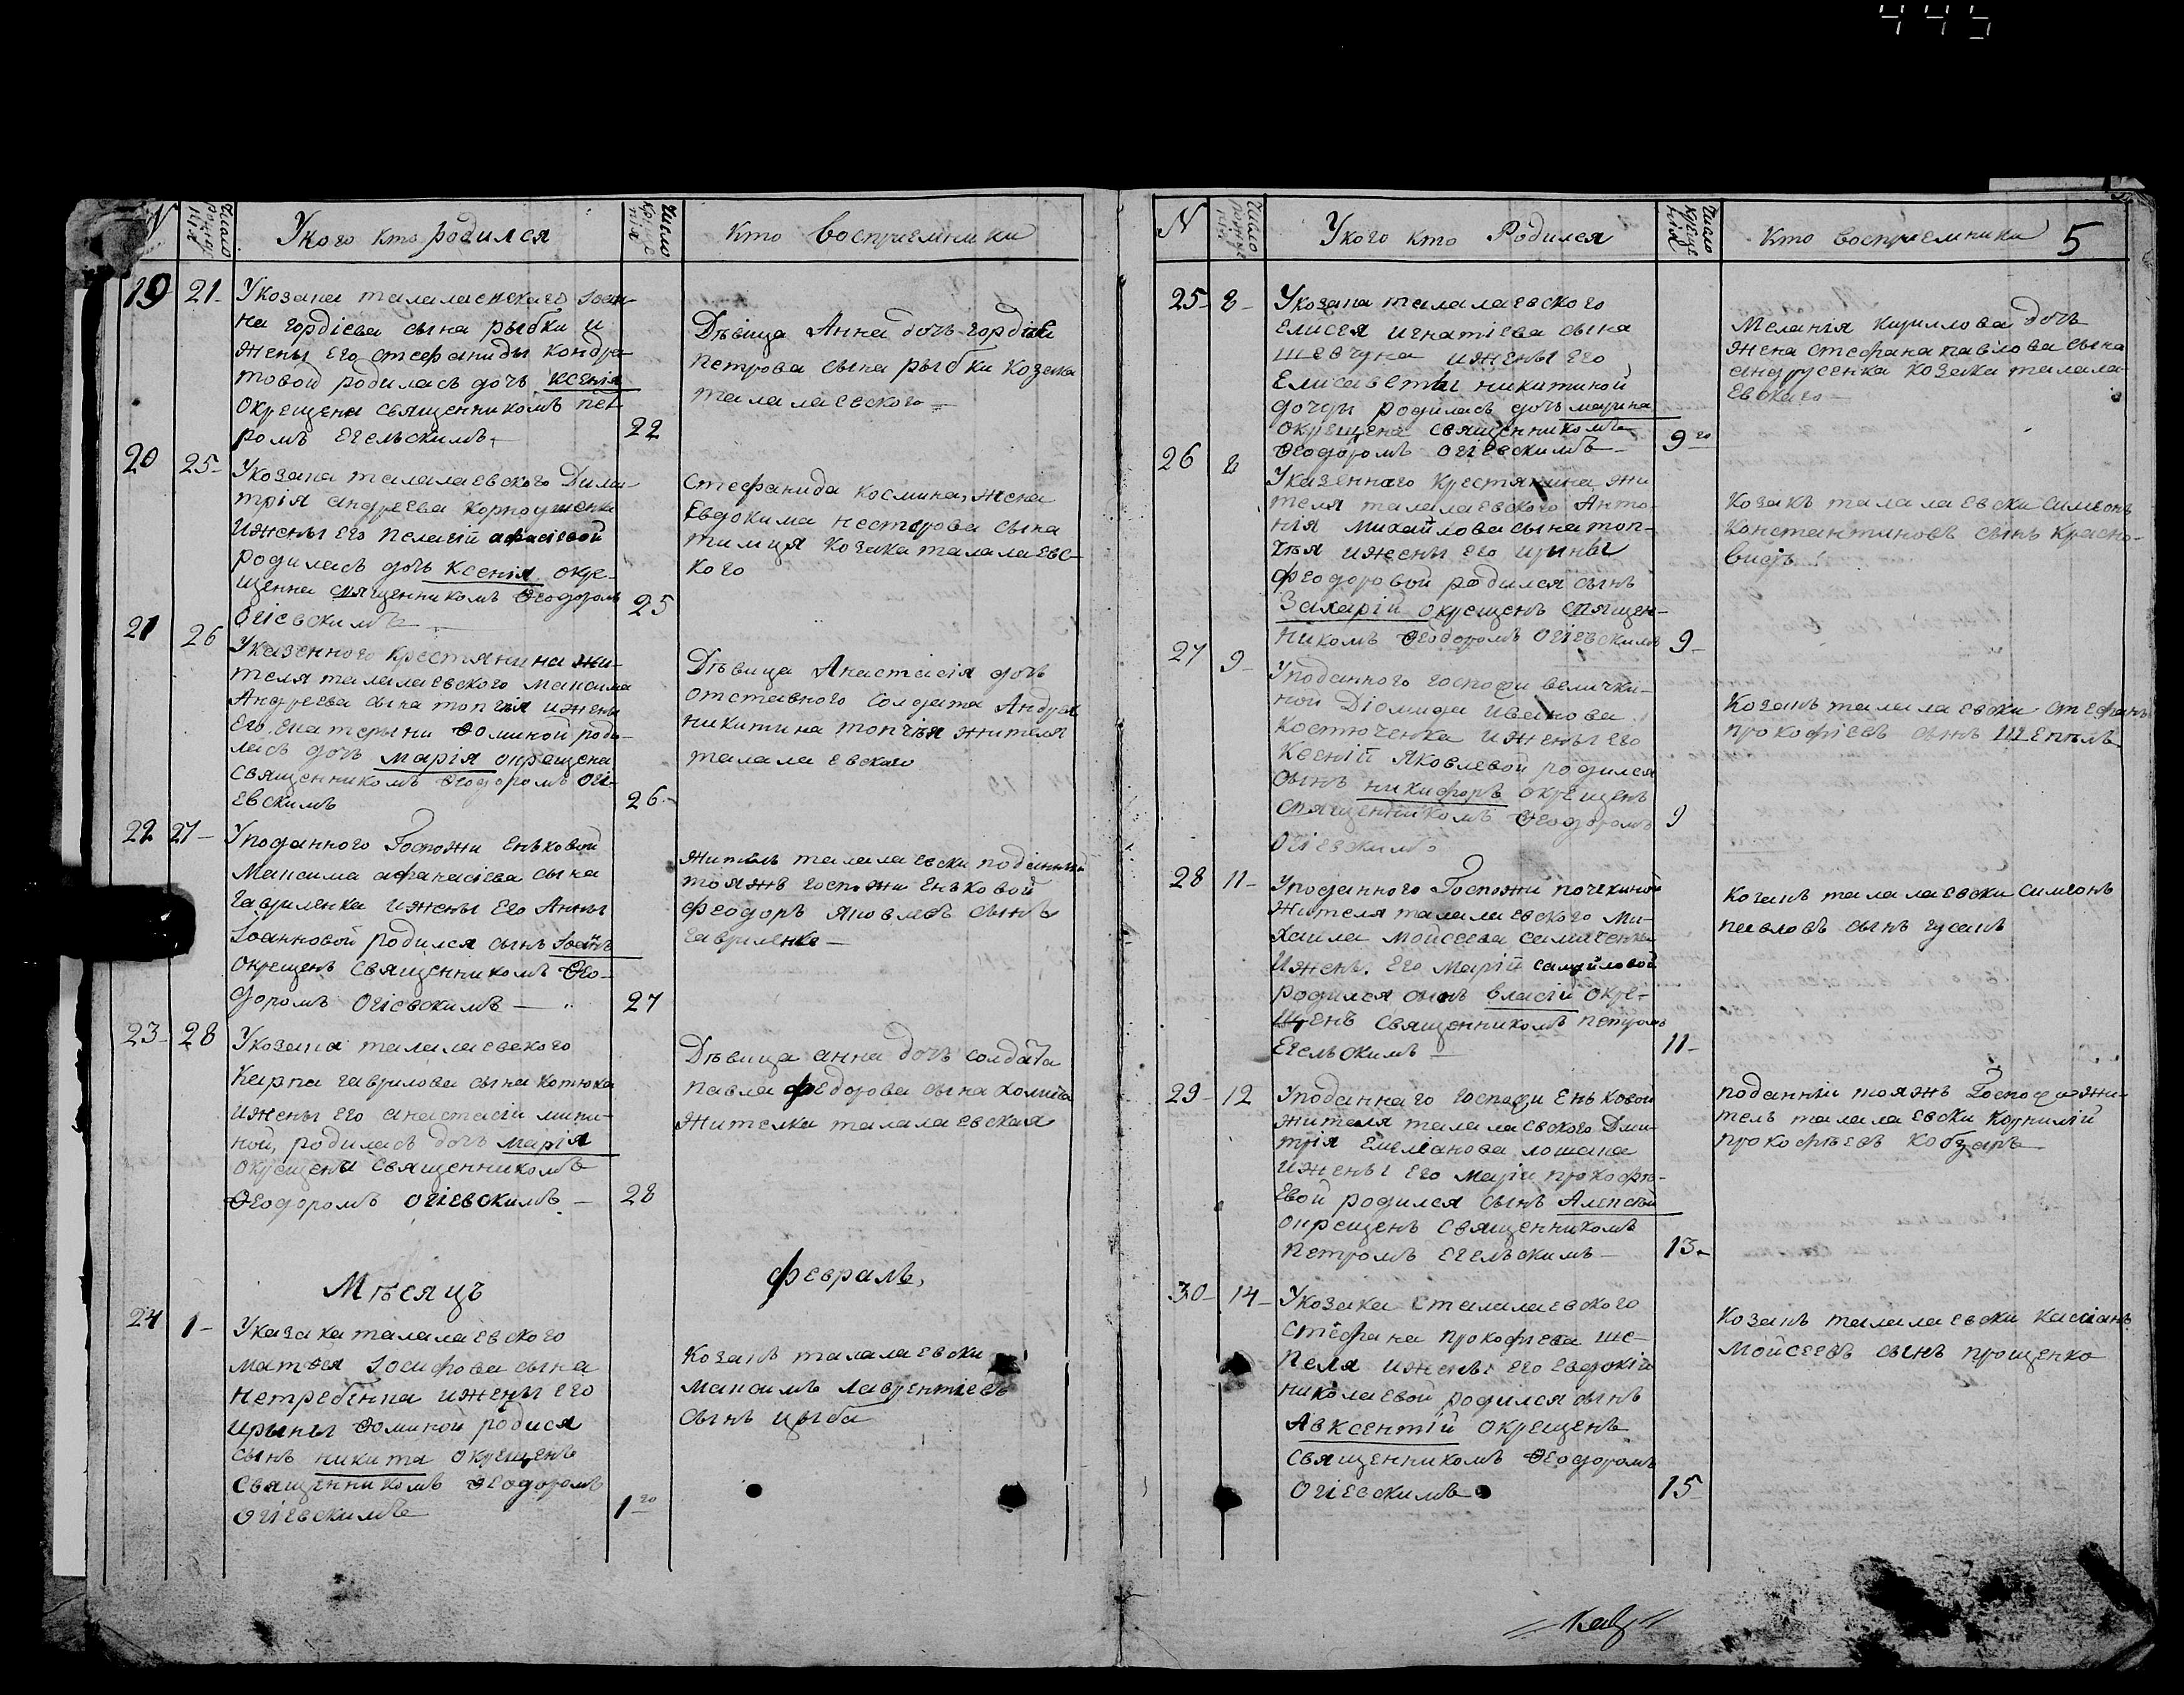 443
N
Число рожденія
У кого кто родился
Число крещенія
Кто восприемники
19
21
У козака талалаевскаго Іоан-
на гордіева сына рыбки и
жены его стефаниды Кондра-
товой родилась дочь Ксенія
окрещена священникомъ пет-
ромъ Егельскимъ
22
Дѣвица Анна дочь гордіея
петрова сына рыбки козака
талалаевского
20
25
У козака талалаевского Дими-
трія андреева
и жены его пелагіи
родилась дочь Ксенія окре-
щенна священникомъ Ѳеодоромъ
Огіевскимъ
25
Стефанида космина, жена
Евдокима нестерова сына
тимця козака талалаевс-
кого
21
26
У казенного крестянина жи-
теля талалаевского максима
Андреева сына топчія и жены
его Екатерыни Ѳоминой роди-
лась дочь марія окрещена
священникомъ Ѳеодоромъ Огі-
евскимъ
26
Дѣвица Анастасія дочь
отставного солдата Андрея
никитина топчія жителя
талалаевского
22
27
У поданного Госпожи Еньковой
Максима афанасіева сына
гавриленка и жены его Анны
Іоанновой родился сынъ Іоаннъ
окрещенъ священникомъ Ѳео-
доромъ Огіевскимъ
27
житель талалаевски поданный
тояжъ госпожи Еньковой
феодоръ яковлевъ сынъ
гавриленко
23
28
У козака талалаевского
Карпа гаврилова сына котюка
и жены его анастасіи мини-
ной, родилась дочь марія
окрещена священникомъ
Ѳеодоромъ Огіевскимъ
28
Дѣвица анна дочь солдата
павла федорова сына хомича
жителка талалаевская
Мѣсяцъ
февраль,
24
1
У казака талалаевского
матѳея Іосифова сына
нетребенка и жены его
ирыны Ѳоминой родися
сынъ никита окрещенъ
священникомъ Ѳеодоромъ
Огіевскимъ
1го
Козакъ талалаевски
максимъ лаврентіевъ
сынъ цыба
N
Число рожденія
У кого кто Родился
Число крещенія
Кто восприемники
5
25
8
У козака талалаевского
Елисея игнатіева сына
шевчука и жены его
Елисаветы никитиной
дочери родилась дочь марина
окрещена священникомъ
Ѳеодоромъ Огіевскимъ
9го
Меланія кириллова дочь
жена стефана павлова сына
андрусенка козака талала-
евскаго
26
8
У казенного крестянина жи-
теля талалаевского Анто-
нія михайлова сына топ-
чія и жены его ирины
феодоровой родился сынъ
Захарій окрещенъ священ-
никомъ Ѳеодоромъ Огіевскимъ
9
Козакъ талалаевски симеонъ
Константиновъ сынъ Красно-
27
9
У поданного госпожи величкі-
ной Діомида иванова
костюченка и жены его
Ксеніи Яковлевой родился
сынъ никифоръ окрещенъ
священникомъ Ѳеодоромъ
Огіевскимъ
9
Козакъ талалаевски стефанъ
прокофіевъ сынъ Шепель
28
11
У поданного Госпожи почекиной
жителя талалаевского ми-
хаила мойсеева
и жены его маріи самуйловой
родился сынъ власій окре-
щенъ священникомъ петромъ
Егельскимъ
11
Козакъ талалаевски симеонъ
павловъ сынъ гусакъ
29
12
У поданнаго госпожи Еньковой
жителя талалаевского Дми-
трія Емеліанова лошака
и жены его маріи прокофіе-
вой родился сынъ Алексѣй
окрещенъ священникомъ
петромъ Егельскимъ
13
поданній тояжъ Госпожи жи-
тель талалаевски Корнилій
прокофьевъ кобзаръ
30
14
У козака талалаевского
стефана прокофіева ше-
пеля и жены его Евдокіи
николаевой родился сынъ
Авксентій окрещенъ
священникомъ Ѳеодоромъ
Огіевскимъ
15
Козакъ талалаевски касіанъ
мойсеевъ сынъ прощенко